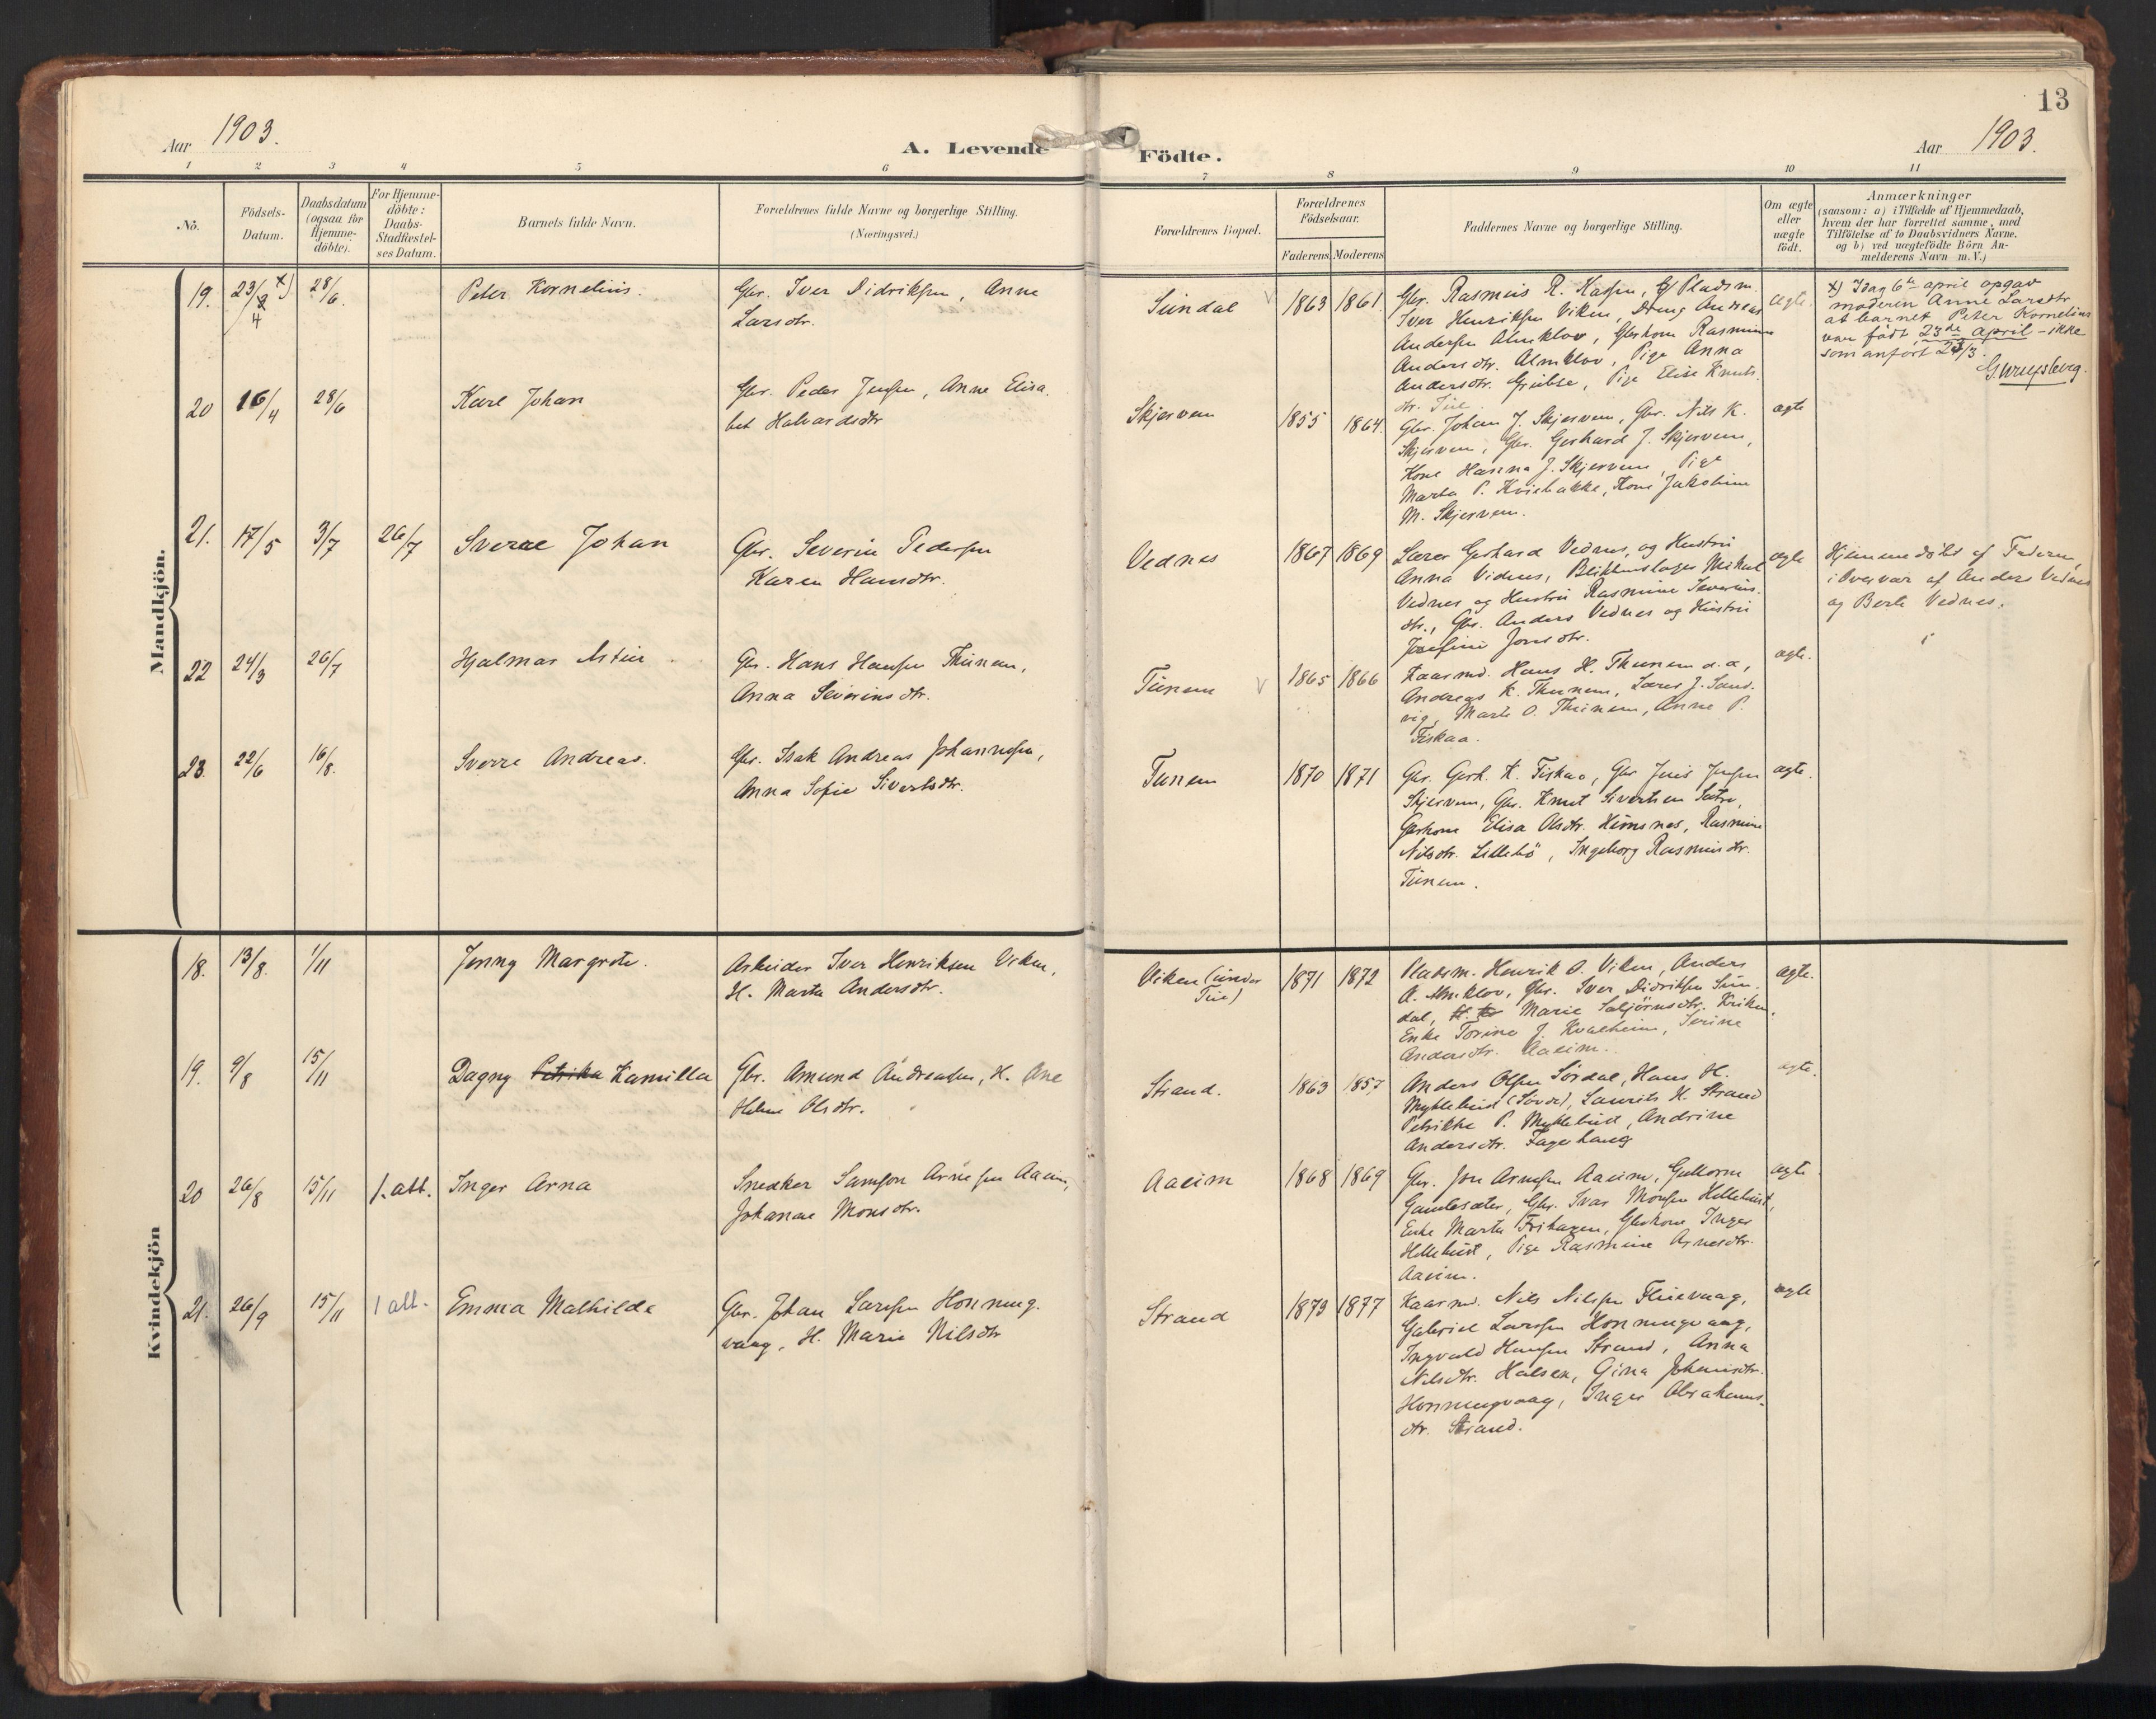 13
Aar 1903.
A. Levende Födte.
Aar 1903.
1 2 3 4 5 6 7 8 9 10 11
No.
Födsels-
Datum.
Daabsdatum
(ogsaa for
Hjemme-
döbte).
For Hjemme-
döbte:
Daabs-
Stadfæstel-
ses Datum.
Barnets fulde Navn.
Forældrenes fulde Navne og borgerlige Stilling.
(Næringsvei.)
Forældrenes Bopæl.
Forældrenes
Födselsaar.
Faderens Moderens
Faddernes Navne og borgerlige Stilling.
Om ægte
eller
uægte
födt.
Anmærkninger
(saasom: a) i Tilfælde af Hjemmedaab,
hvem der har forrettet samme, med
Tilföielse af to Daabsvidners Navne,
og b) ved uægtefödte Börn An-
melderens Navn m. V.)
Mandkjön.
19. 23/3 x) 4 28/6. Peter Kornelius.
Gbr. Iver Didriksen, Anne
Larsdtr.
Sundal 1863 1861
Gbr. Rasmus R. Pladsm.
Iver Henriksen Viken, Dreng Andreas
Andersen Almklov, Gbrkone Rasmine
Andersdtr. Almklov, Pige Anna
Andersdtr. Pige Elise Knuts
dtr.
ægte.
x) Idag 6te april opgav
moderen Anne Larsdtr
at barnet Peter Kornelius
var født 23de april – ikke
som anført 23/3.
20 16/4 28/6 Karl Johan
Gbr. Peder Jensen, Anne Elisa
bet Halvardsdtr
Skjerven 1855 1864.
Gbr. Johan J. Skjerven, Gbr. Nils K.
Skjerven, Gbr. Gerhard J. Skjerven,
Kone Hanna J. Skjerven, Pige
Marta P. Kone Jakobine
M. Skjerven.
ægte
21. 17/5 3/7 26/7 Sverre Johan
Gbr. Severin Pedersen
Karen Hansdtr.
Vednes 1867 1869
Lærer Gerhard Vednes, og Hustru
Anna Vednes, Blikkenslager Mikal
Vednes og Hustru Rasmine Severins
dtr., Gbr. Anders Vednes og Hustru
Josefine Jonsdtr.
ægte
Hjemmedöbt af Faderen,
i Overvær af Anders Vednes
og Berte Vednes.
22 24/3 26/7 Hjalmar
Gbr. Hans Hansen Thunem,
Anna Severinsdtr.
Tunem 1865 1866
Kaarmd. Hans H. Thunem d.a,
Andreas K. Thunem, Lærer J. Sand-
vig, Marte O. Thunem, Anne P.
Fiskaa.
ægte.
23. 22/6 16/8. Sverre Andreas.
Gbr. Isak Andreas Johannesen,
Anna Sofie Sivertsdtr.
Tunem 1870 1871
Gbr. Gerh. K. Fiskaa, Gbr Jens Jensen
Skjerven, Gbr. Knut Sivertsen Sætre,
Gbrkone Elisa Olsdtr. Humsnes, Rasmine
Nilsdtr. Lillebö, Ingeborg Rasmusdtr.
Tunem.
ægte.
Kvindekjön
18. 13/8. 1/11 Jenny Margrete.
Arbeider Iver Henriksen Viken,
H. Marta Andersdtr.
Viken (under
Tue) 1871 1872
Pladsm. Henrik O. Viken, Anders
A. Almklov, Gbr. Iver Didriksen Sun-
dal, Marie
Enke Torine J. Kvalheim, Serine
Andersdtr. Aaeim.
ægte.
19. 9/8 15/11 Dagny Petrika Kamilla
Gbr. Amund Andreasen, H. Ane
Helene Olsdtr.
Strand. 1863 1857
Anders Olsen Sördal, Hans H.
Myklebust (Sövde), Laurits H. Strand
Petrikke P. Myklebust, Andrine
Andersdtr. Fagerhaug
ægte.
20 26/8 15/11 1. alt. Inger Arna
Snedker Samson Arnesen Aaeim,
Johanne Monsdtr.
Aaeim 1868 1869
Gbr. Jon Arnesen Aaeim, Guttorm
Gamlesæter, Gbr. Ivar Monsen Hellebust,
Enke Marta Frihagen, Gbrkone Inger
Hellebust, Pige Rasmine Arnesdtr.
Aaeim.
ægte
21. 26/9 15/11 1 alt. Emma Mathilde
Gbr. Johan Larsen Honning-
vaag, H. Marie Nilsdtr
Strand 1873 1877
Kaarmd. Nils Nilsen
Gabriel Larsen Honningvaag,
Ingvald Hansen Strand, Anna
Nilsdtr. Halsen, Gina Johansdtr.
Honningvaag, Inger Abrahams-
dtr. Strand.
ægte